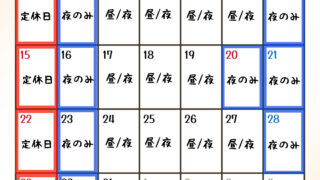 定休日 夜のみ 昼/夜 昼/夜 昼/夜 昼/夜 夜のみ
15 16 17 18 19 20 21
定休日 夜のみ 昼/夜 昼/夜 昼/夜 夜のみ 夜のみ
22 23 24 25 26 27 28
定休日 夜のみ 昼/夜 昼/夜 昼/夜 昼/夜 夜のみ